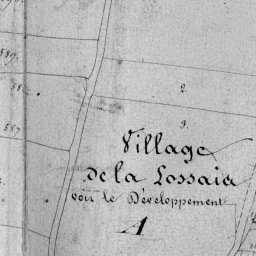 589.
58
2.
587
3.
Village
de la Lossais
voir le Développement
A